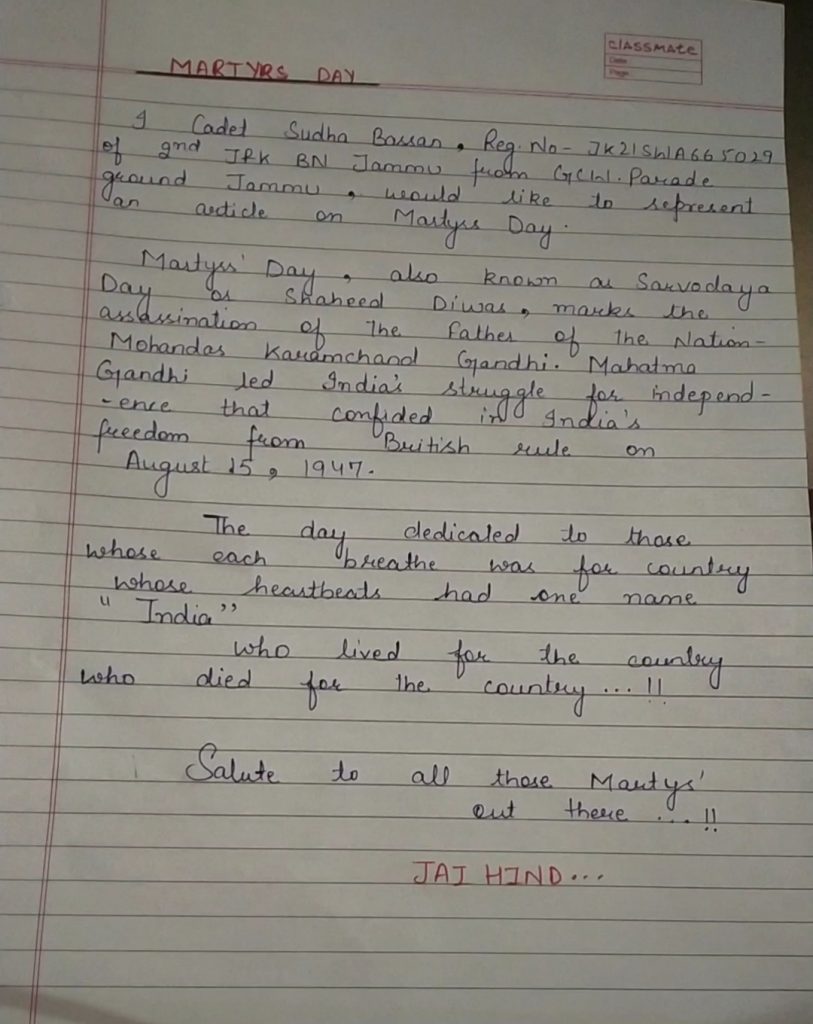 classmate
Date
Page
MARTYRS DAY
I Cadet Sudha Bassan, Reg. No- JK21SWA665029
of 2nd J&K BN Jammu from GCW. Parade
ground Jammu, would like to represent
an article on Martyrs Day.
Martyrs' Day, also known as Sarvodaya
Day or Shaheed Diwas, marks the
assassination of the Father of the Nation-
Mohandas Karamchand Gandhi. Mahatma
Gandhi led India's struggle for independ-
-ence that confided in India's
freedom from British rule on
August 15, 1947.
The day dedicated to those
whose each breathe was for country
whose heartbeats had one name
"India"
who lived for the country
who died for the country ... !!
Salute to all those Martys'
out there ... !!
JAI HIND...